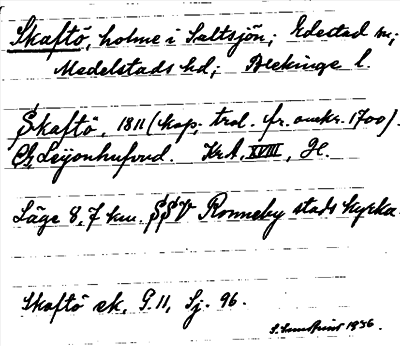 Skaftö, holme i Saltsjön; Edestad sn;
Medelstads hd; Blekinge l.
Skaftö, 1811 (kop. trol. fr. omkr. 1700).
C. Leijonhufvud. KrA, XVIII, H.
Läge 8,7 km. SSV Ronneby stads kyrka.
Skaftö ek, G.11, Sj. 96.
1936.